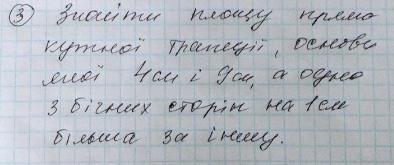 ③ Знайти площу прямо
кутної трапеції, основи
якої 4см і 9см, а одна
з бічних сторін на 1см
більша за іншу.